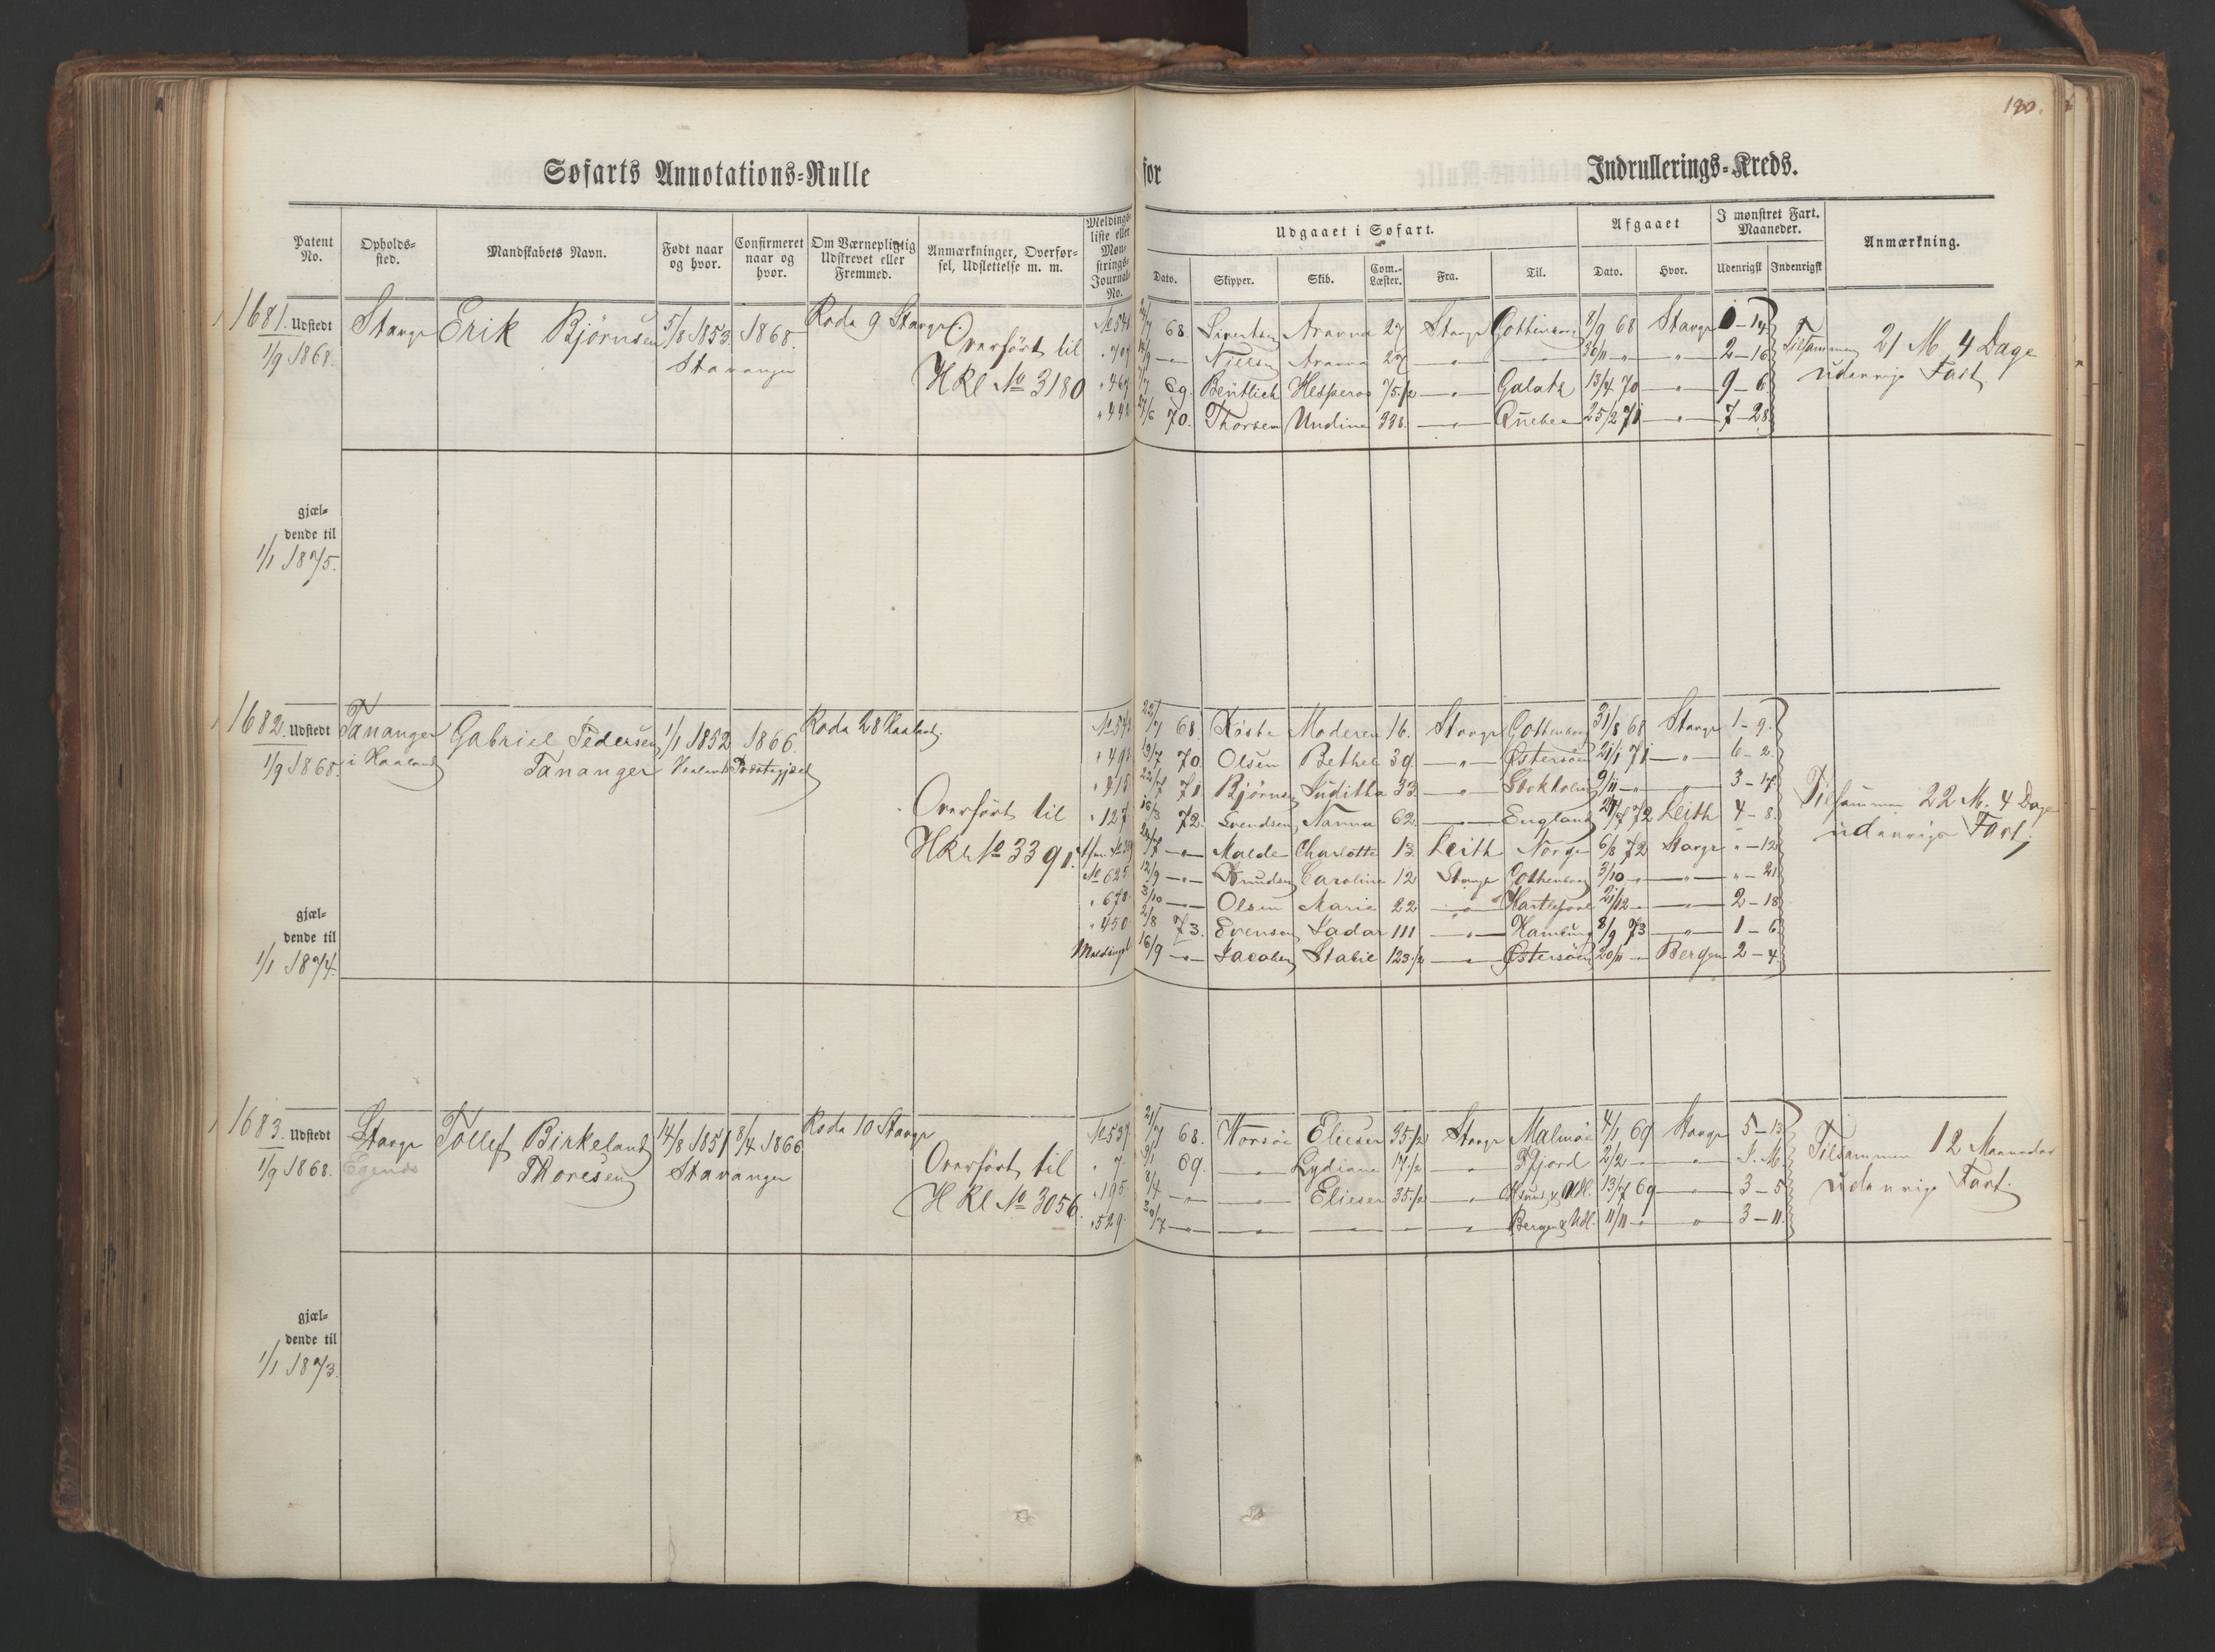 190.
Søfarts Annotations-Rulle for Indrullerings-Kreds.
Patent No. Opholds-sted. Mandskabets Navn. Født naar og hvor. Confirmeret naar og hvor. Om Værnepligtig Udskrevet eller Fremmed. Anmærkninger, Overførsel, Udslettelse m. m. Meldings-liste eller Mønstrings-Journal-No. Udgaaet i Søfart. Afgaaet I mønstret Fart. Maaneder. Anmærkning.
Dato. Skipper. Skib. Com.-Læster. Fra. Til. Dato. Hvor. Udenrigsk Indenrigsk
1681. Udstedt Stavgr Erik Bjørnsen 5/8 1853 1868. Roda 9 Stavgr.
1/9 1868. Stavanger
Overført til
HRl No 3180
68. Sivertsen Aravna 27 Stavgr Gottenborg 8/9 68 Stavgr 1-14
Nielsen Aravna 27 30/11 2-16
" 467 69. Bentlich Hesperos 75 1/2 Galatz 13/4 70 9-6
70. Thorsen Undine 338. Quebec 25/2 71 7-28
Tilsammen 21 M 4 Dage
udenrigs Fart
gjæl-
dende til
1/1 1875.
1682. Udstedt Tananger Gabriel Pedersen 1/1 1852 1866. Roda 28 Haaland.
1/9 1868. i Haaland Tananger Haalands Præstegjæld
Overført til
HRl No 3391.
22/7 68. Moderen 16. Stavgr Gottenborg 31/8 68 Stavgr 1-9.
70. Olsen Bethel 39. Østersøen 21/1 71 6-2.
71 Bjørnsen Juditha 33. Stokholm 9/11 3-17
" 127 16/3 72. Svendsen Nanna 62. England 72 Leith 4-8.
Malde Charlotte 13. Leith Norge 6/8 72 Stavgr "-12
No 625 12/9 Knudsen Caroline 12 Stavgr Gothenborg 3/10 "-21
" 678 3/10 Olsen Marie 22 Hartlepool 21/12 2-18
" 450 2/8 73. Evensen Zadar 111 Hamburg 8/9 73 1-6
Meldingsl 16/9 Jacobsen Stabil 123 1/2 Østersøen 20/11 Bergen 2-4
Tilsammen 22 M. 4 Dage
udenrigs Fart;
gjæl-
dende til
1/1 1874.
1683. Udstedt Stavgr Tollef Birkeland 14/8 1851 8/4 1866. Roda 10 Stavgr
1/9 1868. Egenes Thoresen Stavanger
Overført til
HRl No 3056.
No 537 21/7 68. Korsøe Elieser 35 1/2 Stavgr Malmöe 4/1 69 Stavgr 5-13
" 7. 69. Lydiane 17 1/2 Fjord 2/2 J. M.
" 195. 8/4 Elieser 35 1/2 & Udl. 13/7 69 3-5
" 529. 30/7 Bergen & Udl. 11/11 3-11.
Tilsammen 12 Maaneder
udenrigs Fart.
gjæl-
dende til
1/1 1873.